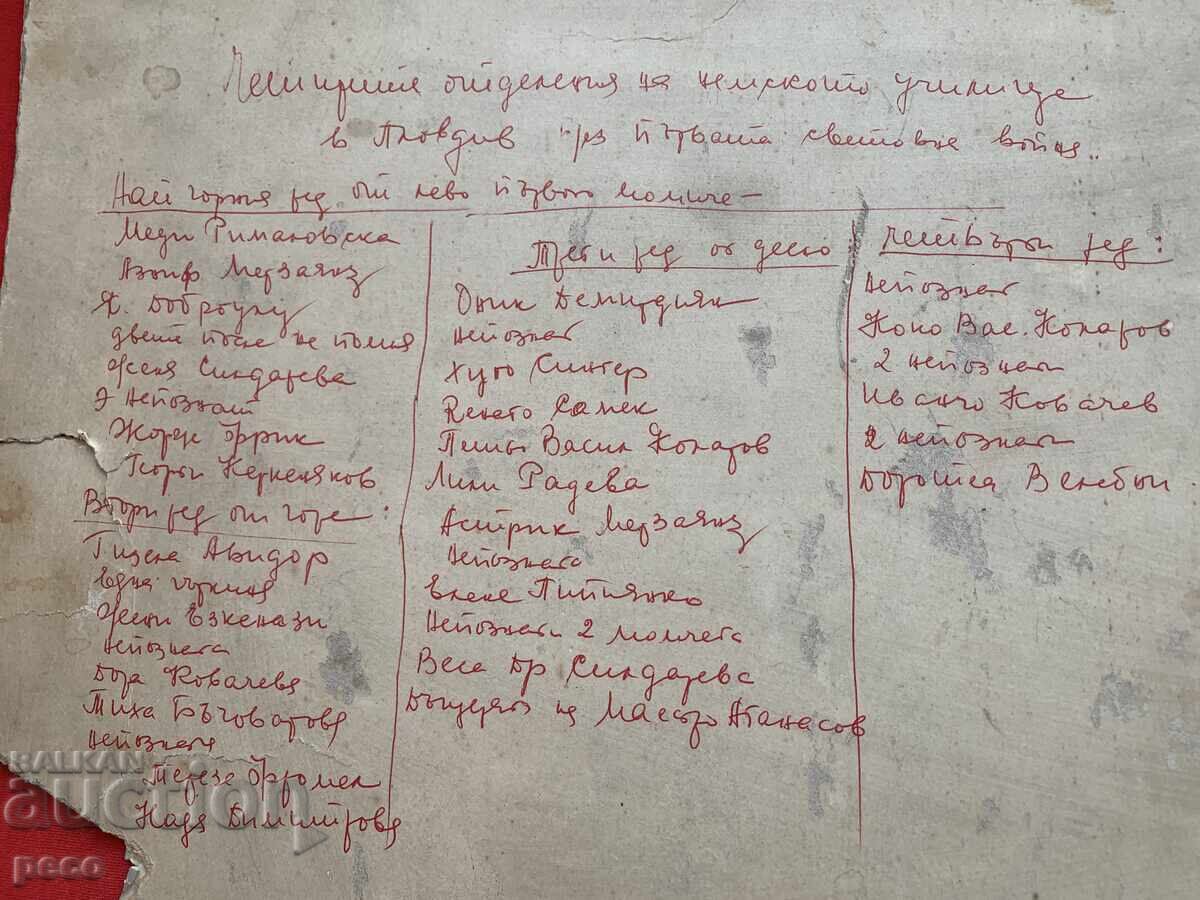 Четирите отделения на немското училище
в Пловдив през първата световна война..
Най горния ред от лево първото момиче –
Меди Римановска
Азниф Мерзаянз
Я.
двете после не помня
Женя Синдарева
Э непознат
Жорж Фрик
Георги Керкеняков
Втори ред от горе:
Гизела Авидор
Една гъркиня
Жени Езкенази
непозната
Дора Ковачева
Тиха Бъчоварова
непозната
Терезе Фромек
Надя Димитрова
Трети ред от десно
Оник Демирдиян
непознат
Хуго Сингер
Ренато Самек
Пешы Васил Кокаров
Лили Радева
Астрик Мерзаянз
непозната
Елене
Непознати 2 момчета
Веса Др Синдарева
Дъщерята на Маестро Атанасов
Четвърти ред:
Непознат
Коко Вас. Кокаров
2 непознати
Иванчо Ковачев
2 непознати
Доротеа
BALKAN
auction
peco